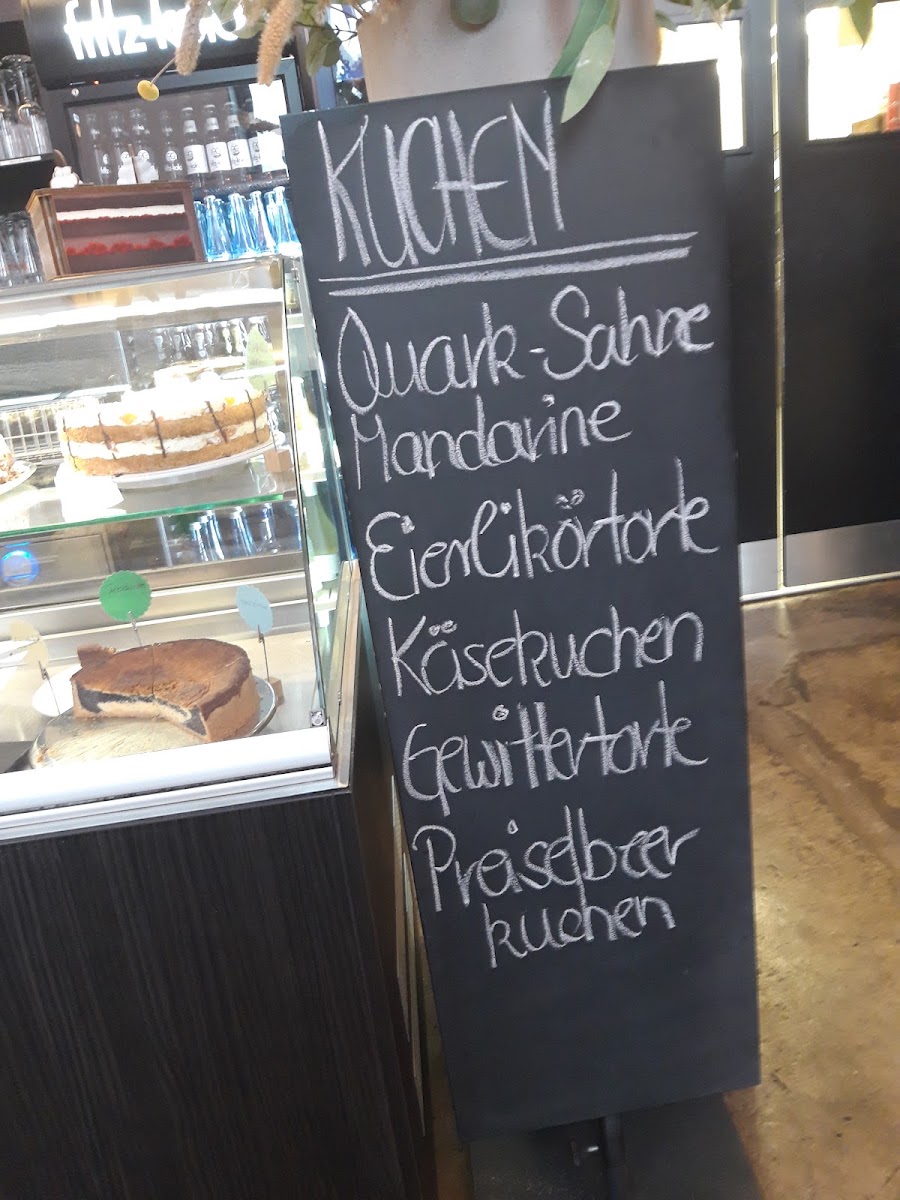 fritz-kola
KUCHEN
Quark-Sahne
Mandarine
Eierlikörtorte
Käsekuchen
Gewittertorte
Preiselbeer
kuchen